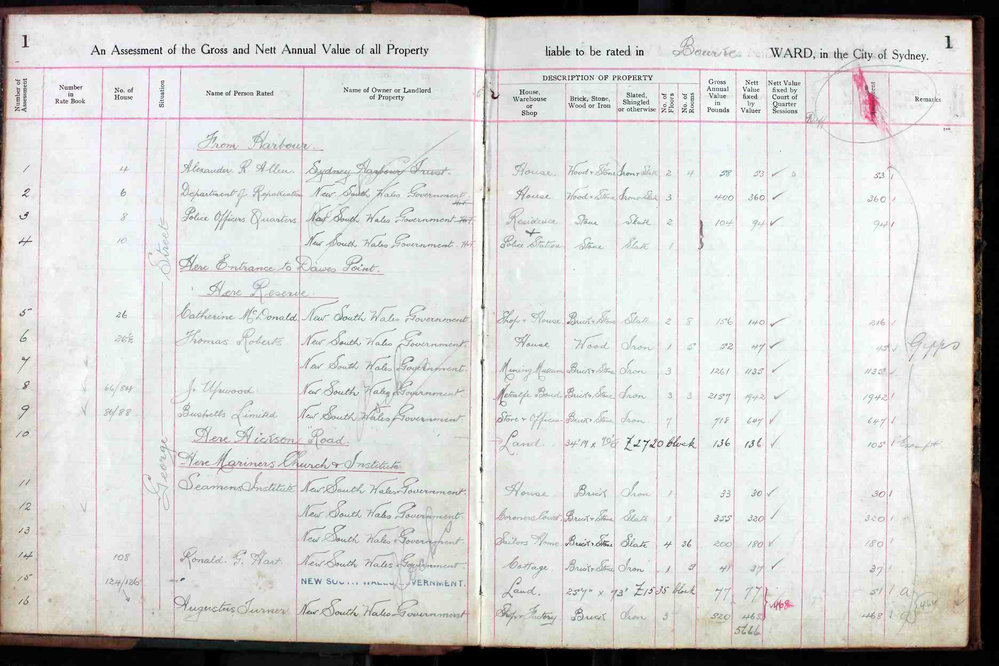 1
An Assessment of the Gross and Nett Annual Value of all Property liable to be rated in Bourke WARD, in the City of Sydney.
1
Number of Assessment
Number in Rate Book
No. of House
Situation
Name of Person Rated
Name of Owner or Landlord of Property
DESCRIPTION OF PROPERTY
House, Warehouse or Shop
Brick, Stone, Wood or Iron
Slated, Shingled or otherwise
No. of Floors
No. of Rooms
Gross Annual Value in Pounds
Nett Value fixed by Valuer
Nett Value fixed by Court of Quarter Sessions
Remarks
George Street
From Harbour
1 4 Alexander R. Allen Sydney Harbour Trust. House Wood & Stone Iron & Slate 2 4 58 53 53
2 6 Department of Repatriation New South Wales Government House Wood & Stone Iron & Slate 3 400 360 360
3 8 Police Officers Quarters New South Wales Government Residence Stone Slate 2 104 94 94
4 10 New South Wales Government + Police Station Stone Slate 1
Here Entrance to Dawes Point.
Here Reserve
5 26 Catherine McDonald New South Wales Government Shop & House Brick & Stone Slate 2 8 156 140 216
6 26½ Thomas Roberts New South Wales Government. House Wood Iron 1 5 52 47 45
Gipps
7 New South Wales Government. Mining Museum Brick & Stone Iron 3 1261 1135 1135
8 66/84 J. Upwood New South Wales Government Metcalfe Bond Brick & Stone Iron 3 3 2157 1942 1942
9 86/88 Bushells Limited New South Wales Government Store & Offices Brick & Stone Iron 7 718 647 647
10 Here Hickson Road Land £2720 block 136 136 105 Exempt
Here Mariners Church & Institute
11 Seamens Institute New South Wales Government. House Brick Iron 1 33 30 30
12 New South Wales Government. Coroners Court Brick & Stone Slate 1 355 320 320
13 New South Wales Government. Sailors Home Brick & Stone Slate 4 36 200 180 180
14 108 Ronald G. Hart New South Wales Government Cottage Brick & Stone Iron 1 3 41 37 37
15 124/126 NEW SOUTH WALES GOVERNMENT. Land 23'7" x 73' £1535 block 77 77 51
16 Augustus Turner New South Wales Government Shop & Factory Brick Iron 3 520 468 468 468
5666